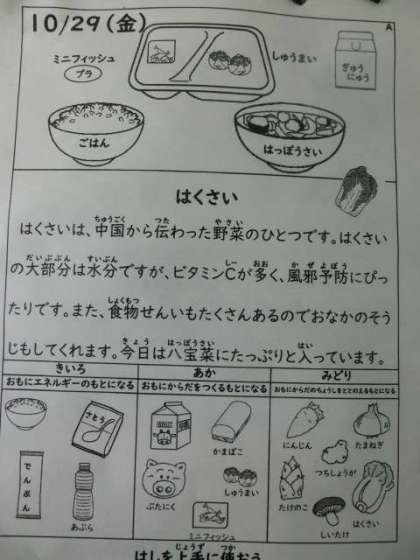 10/29(金)
A
ミニフィッシュ
プラ
しゅうまい
ぎゅうにゅう
ごはん
はっぽうさい
はくさい
はくさいは、中国から伝わった野菜のひとつです。はくさい
の大部分は水分ですが、ビタミンCが多く、風邪予防にぴっ
たりです。また、食物せんいもたくさんあるのでおなかのそう
じもしてくれます。今日は八宝菜にたっぷりと入っています。
きいろ
あか
みどり
おもにエネルギーのもとになる
おもにからだをつくるもとになる
おもにからだのちょうしをととのえるもとになる
さとう
かまぼこ
にんじん
たまねぎ
でんぷん
しゅうまい
つちしょうが
ぶたにく
たけのこ
はくさい
あぶら
ミニフィッシュ
しいたけ
はしを上手に使おう